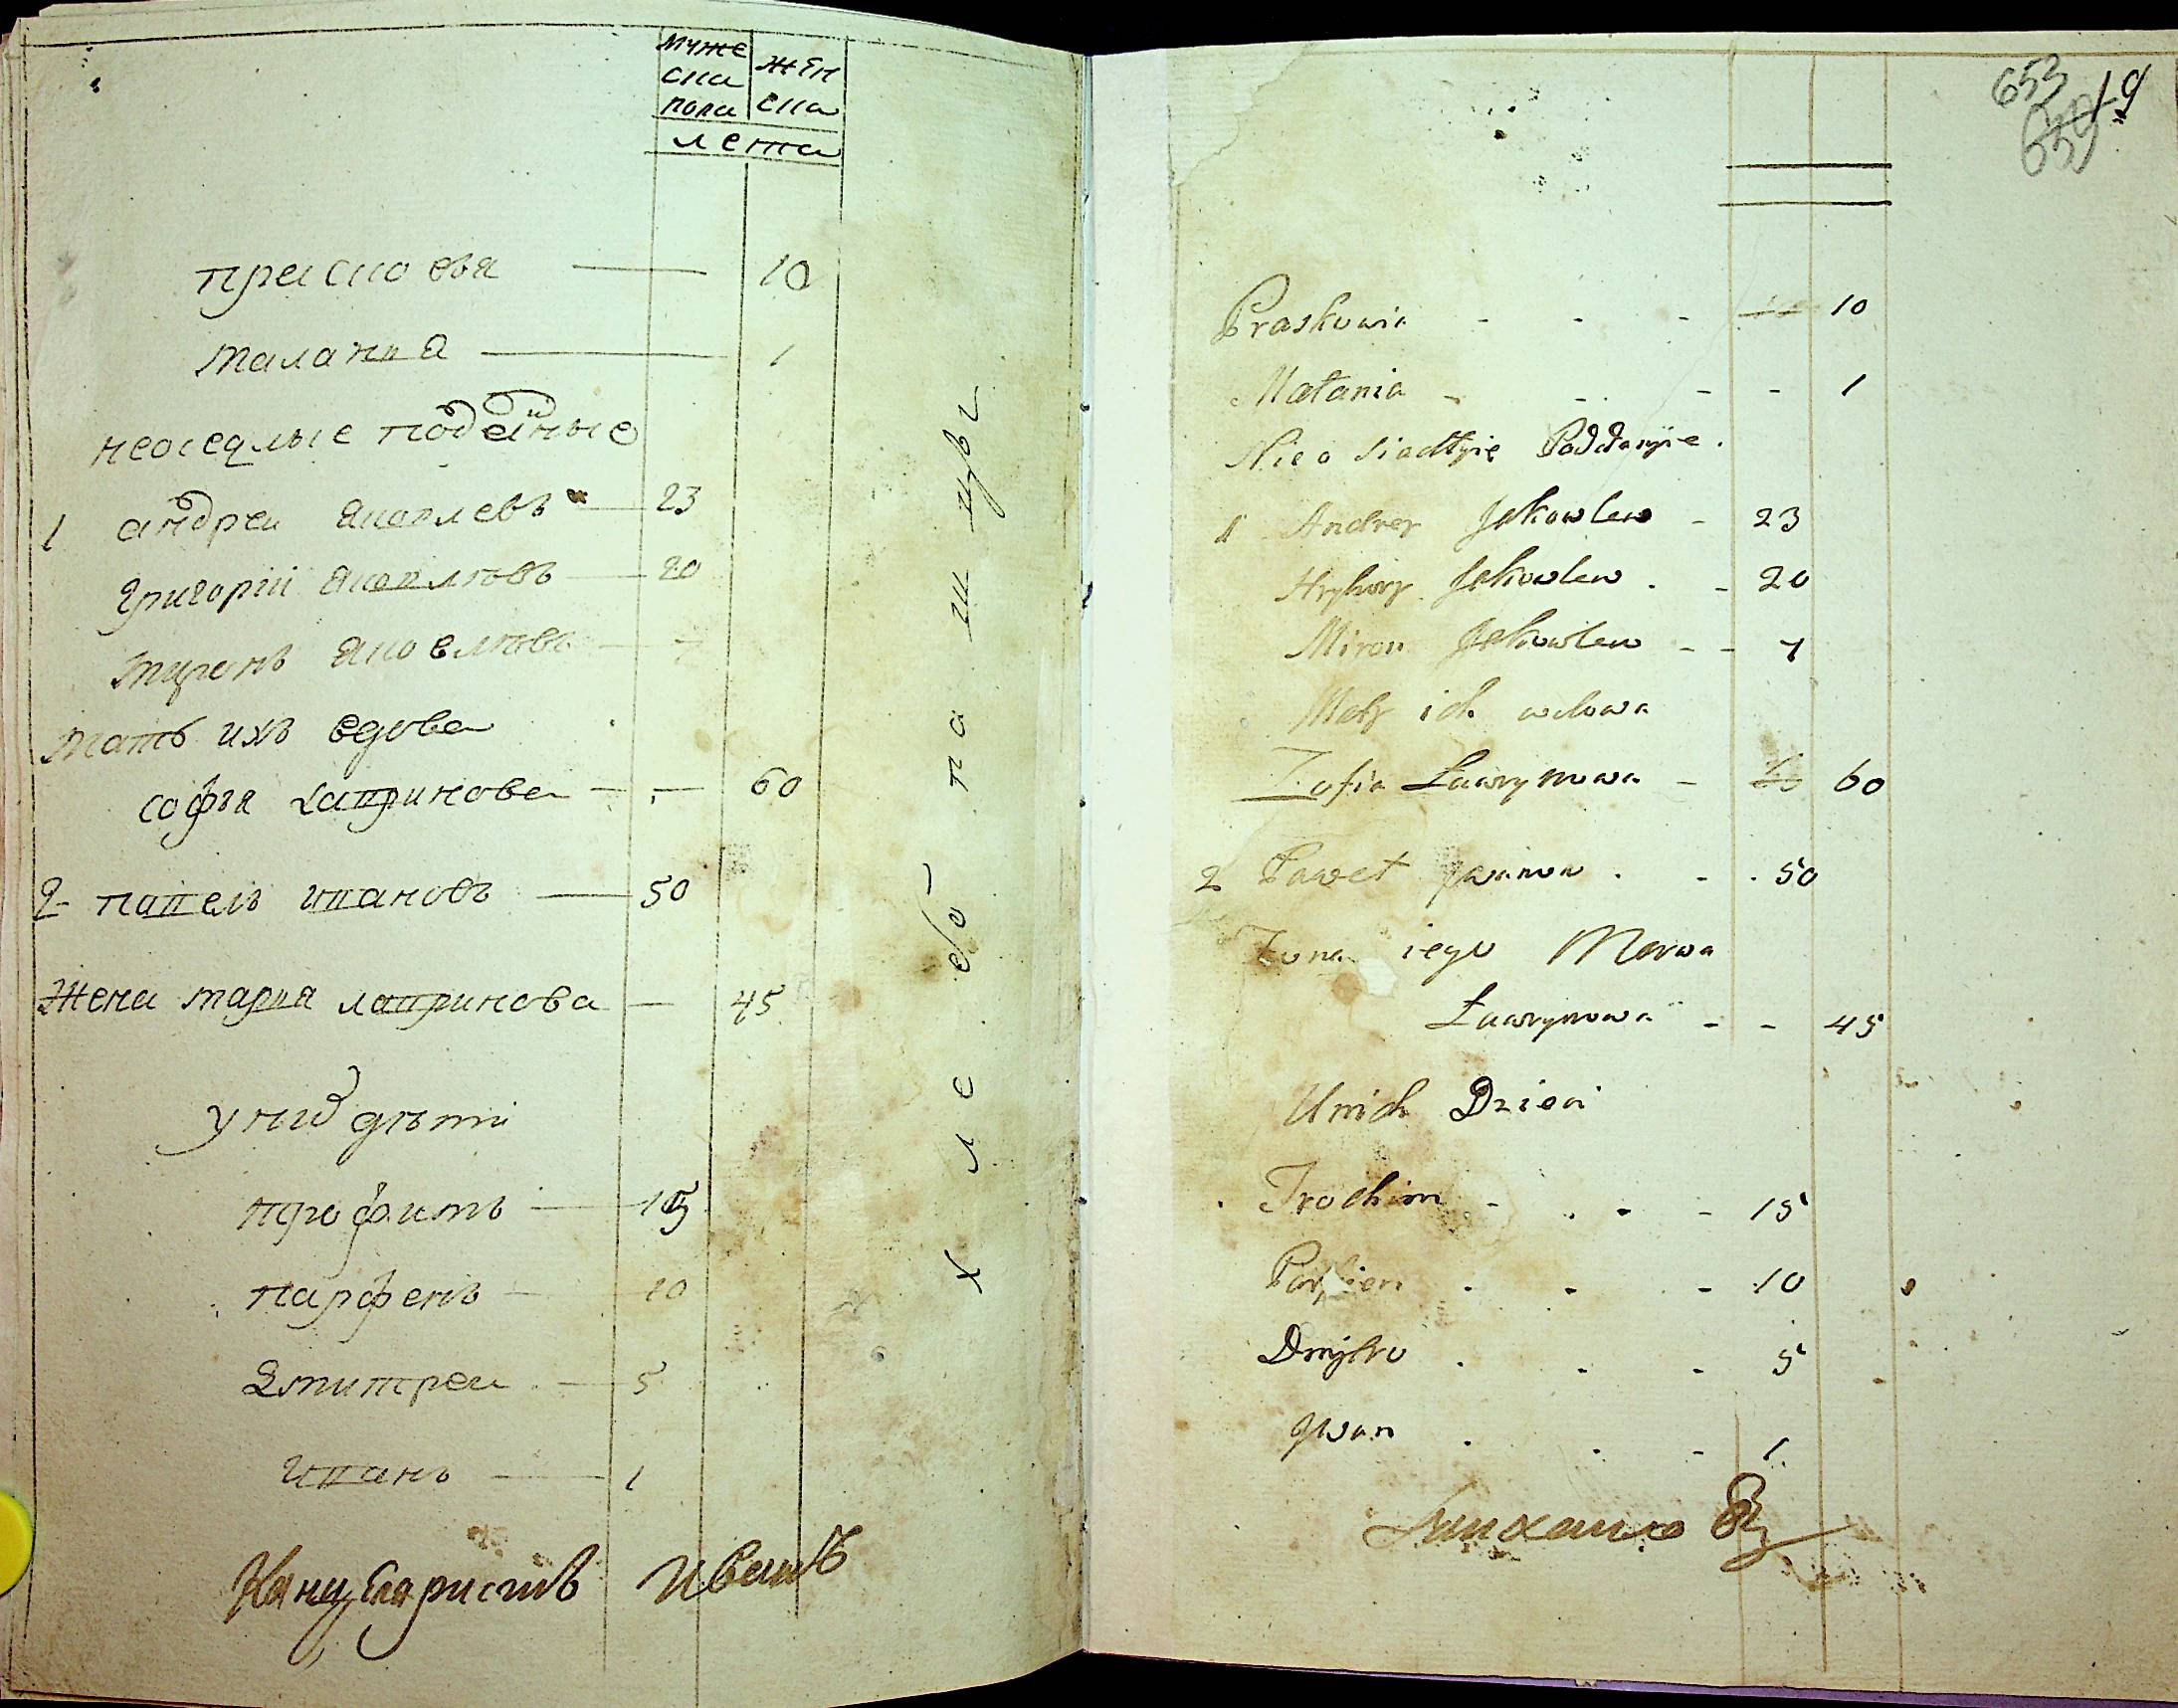 муже
ска
пола
жен
ска
лета
прасковя — 10
маланя — 1
неоседлые подданые
1 андреи яковлевъ — 23
григории яковлювъ — 20
миронъ яковлювъ — 7
мать ихъ вдова
софья лавринова — — 60
2 павелъ ивановъ — 50
Жена марья лавринова — 45
у них дѣти
трофимъ — 15
парфенъ — 10
Дмитреи — 5
иванъ — 1
Канцеляристъ Иванъ
653
19
Praskowia - - - 10
Małania - - - - 1
Nieosiadłyie Poddanyie.
1 Andrey Jakowlew - 23
Hryhory Jakowlew . - 20
Miron Jakowlew - - 7
Maty ich wdowa
Zofia Ławrynowa - 60
2 Paweł Jwanow . - . 50
Żona iego Marwa
Ławrynowa - - 45
U nich Dzieci
Trochim - . - - 15
Parfien . - - 10
Dmytro . - - 5
Jwan . . - 1